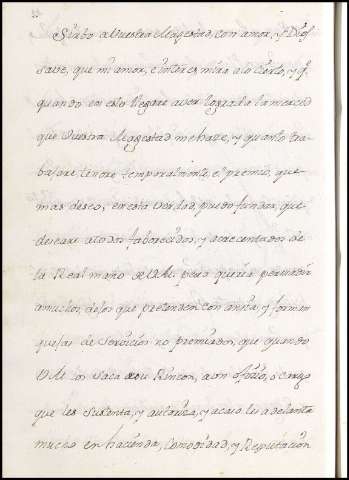 Sirbo a Vuestra Magestad, con amor, y Dios
save, que mi amor, e interes mira a lo cierto, y q.
quando en esto llegare aver logrado la merced
que Vuestra Magestad me haze, y quanto tra-
bajare tendre temporalmente el premio, que
mas deseo, en esta Verdad, puedo fundar, que
deseare a todos faborecidos, y acrecentados de
la Real mano de V.M. pero querria persuadir
a muchos, desos que pretenden con ansia, y forman
quejas de Servicios no premiados, que quando
V.M. los saca de su Rincon, a un oficio, o cargo
que les sustenta, y autoriza, y acaso les adelanta
mucho en hacienda, Comodidad, y Reputacion